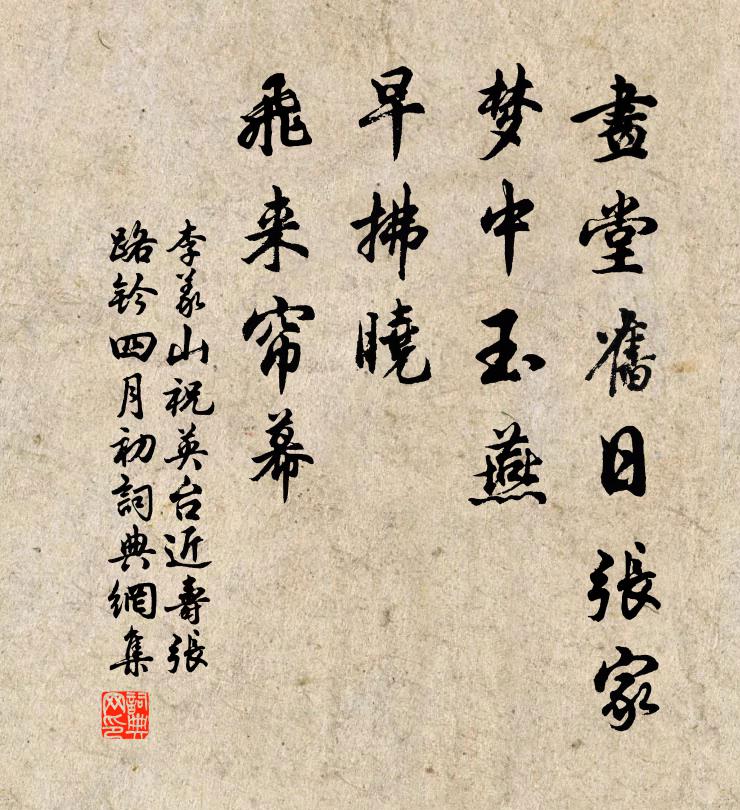 畫堂舊日張家
梦中玉燕
早拂曉
飛来帘幕
李義山祝英台近壽張
路鈐四月初詞典網集
詞典网印